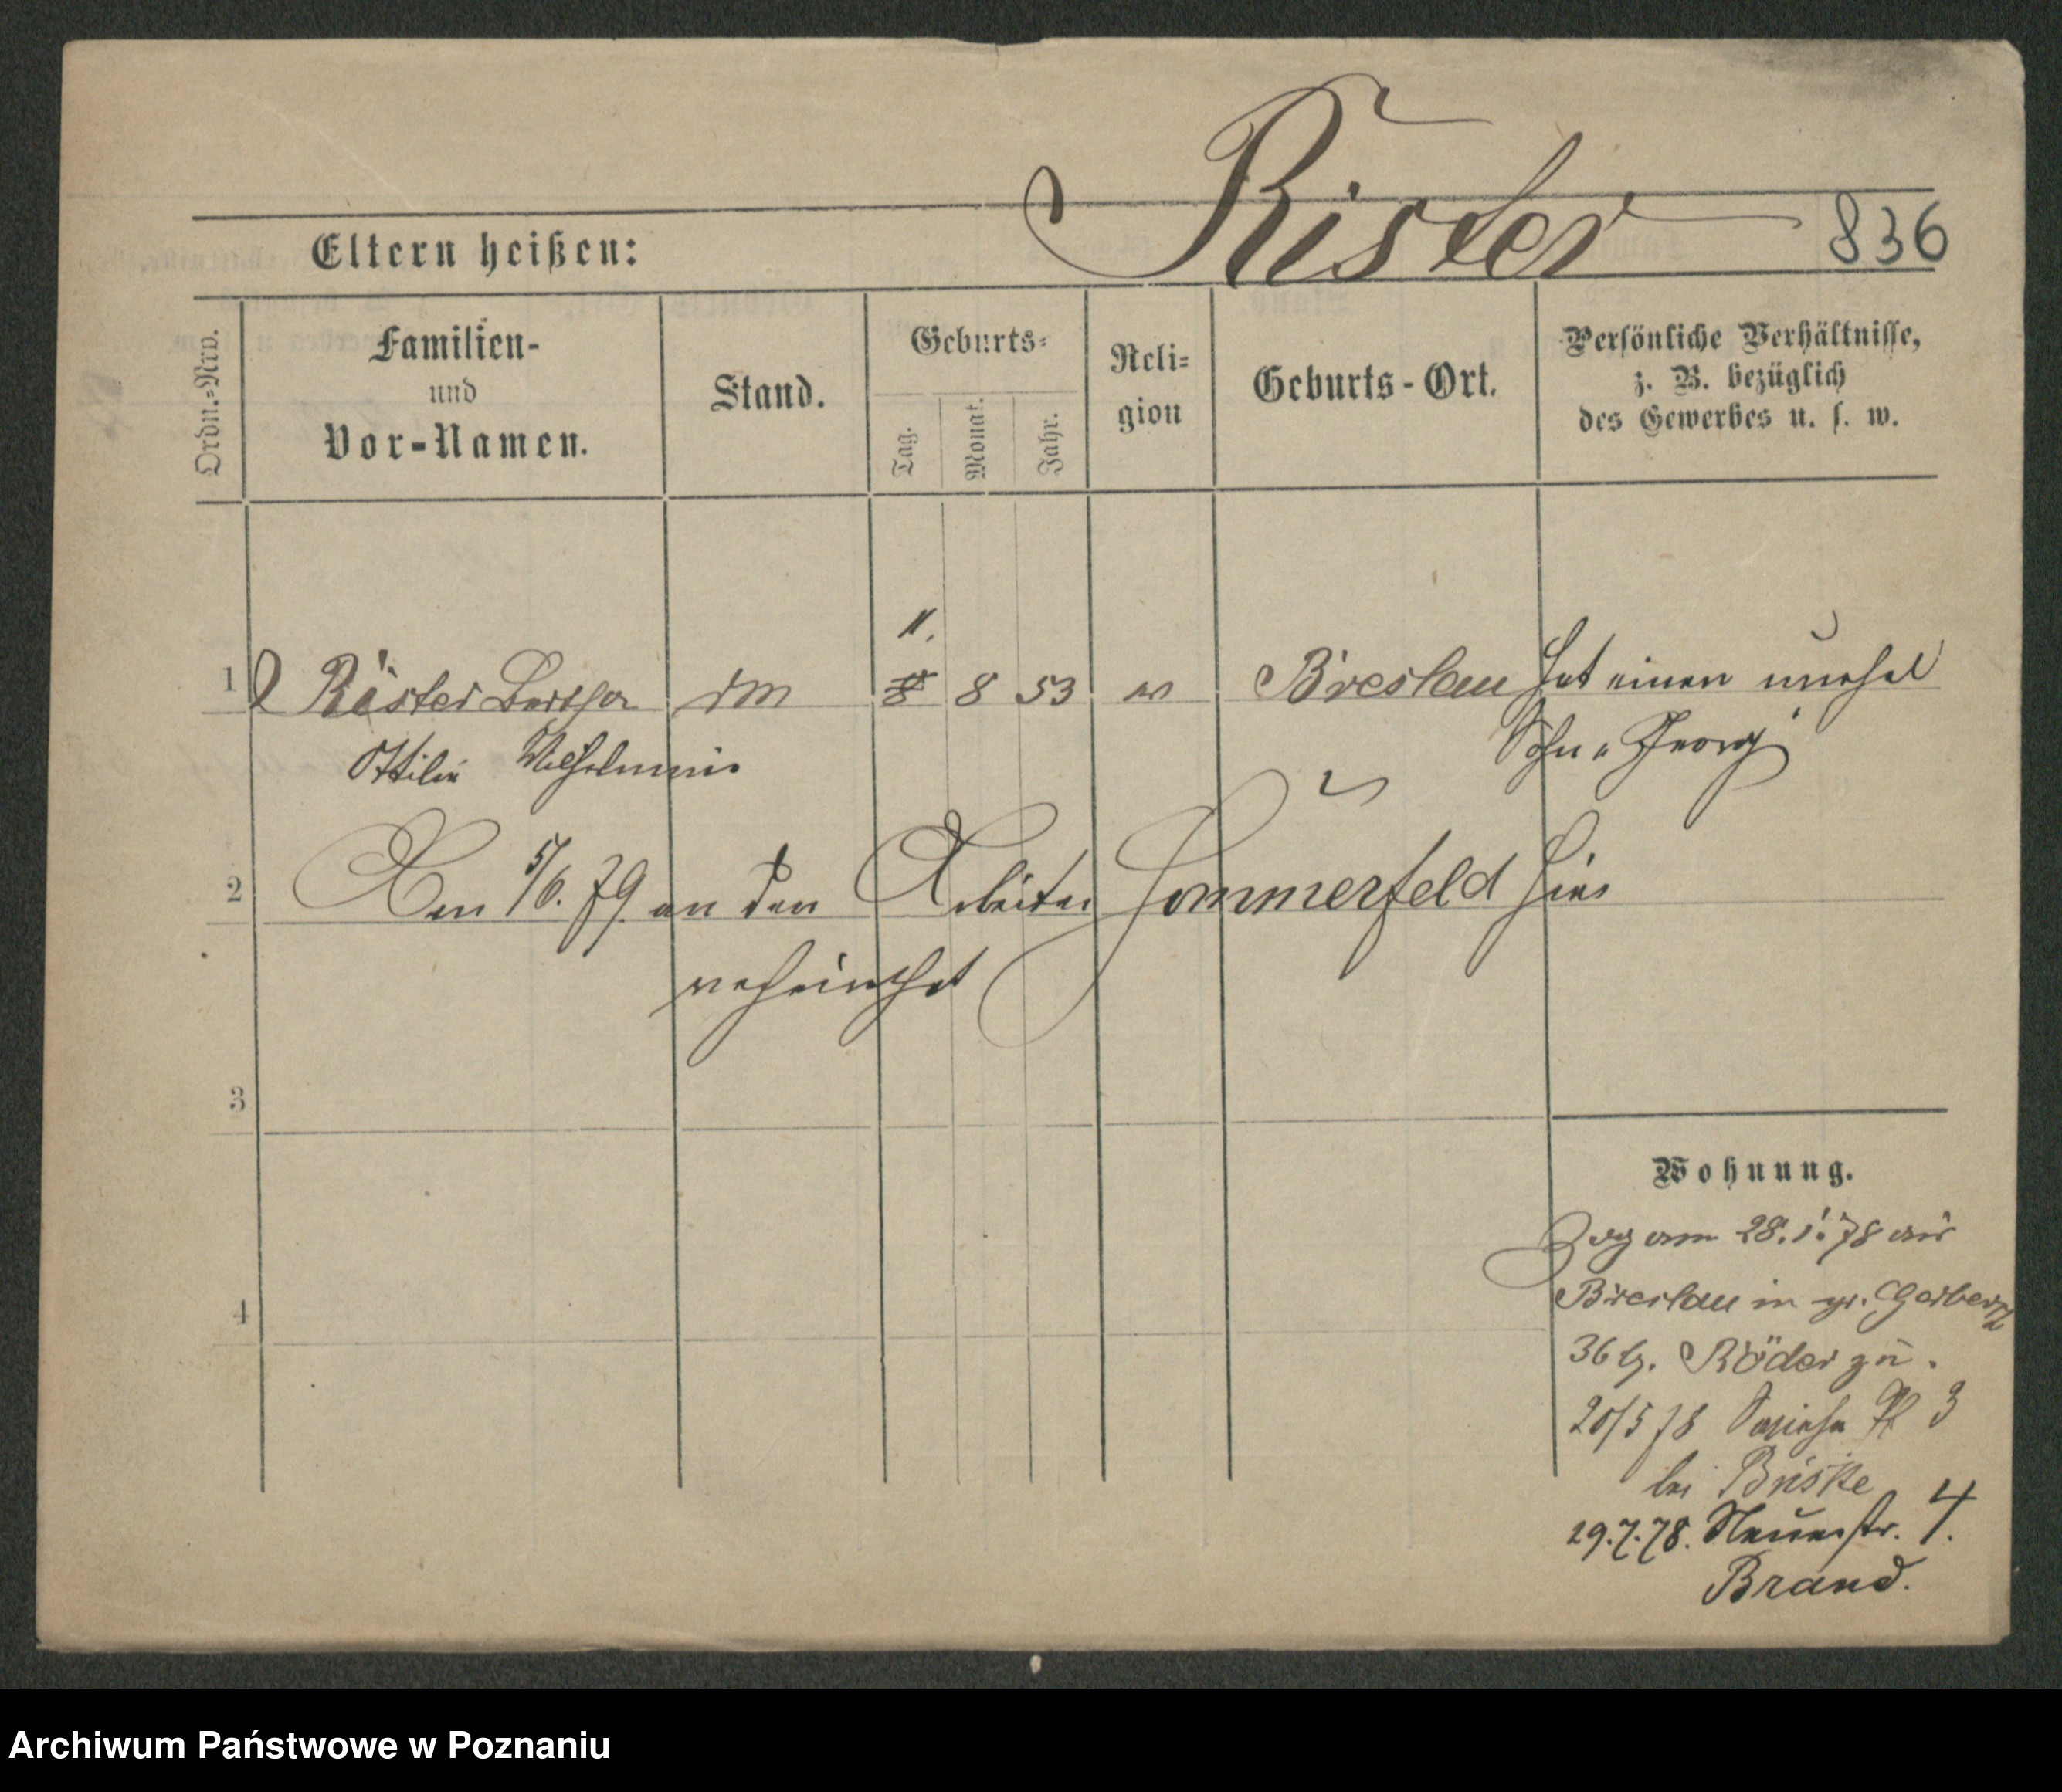 Rister 836
Eltern heißen:
Ordn.-Nro. Familien- und Vor-Namen. Stand. Geburts- Tag. Monat. Jahr. Reli-gion Geburts-Ort. Persönliche Verhältnisse, z. B. bezüglich des Gewerbes u. s. w.
11.
1 Rister Bertha 8 8 53 Breslau hat einen unehel
Ottilie Wilhelmine Sohn "Georg"
2 Am 5/6. 79. an den Arbeiter Sommerfeld hier
verheirathet
3
Wohnung.
Zog am 28.1.78 aus
4 Breslau in gr. Gerberstr
36 b. Röder zu.
20/5 78 Sapieha Pl 3
bei Briske
29.7.78. Neuestr. 4.
Brand.
Archiwum Państwowe w Poznaniu